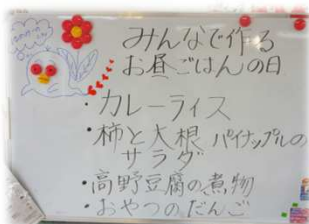 みんなで作る
お昼ごはんの日
・カレーライス
・柿と大根 パイナップルの
サラダ
・高野豆腐の煮物
・おやつのだんご